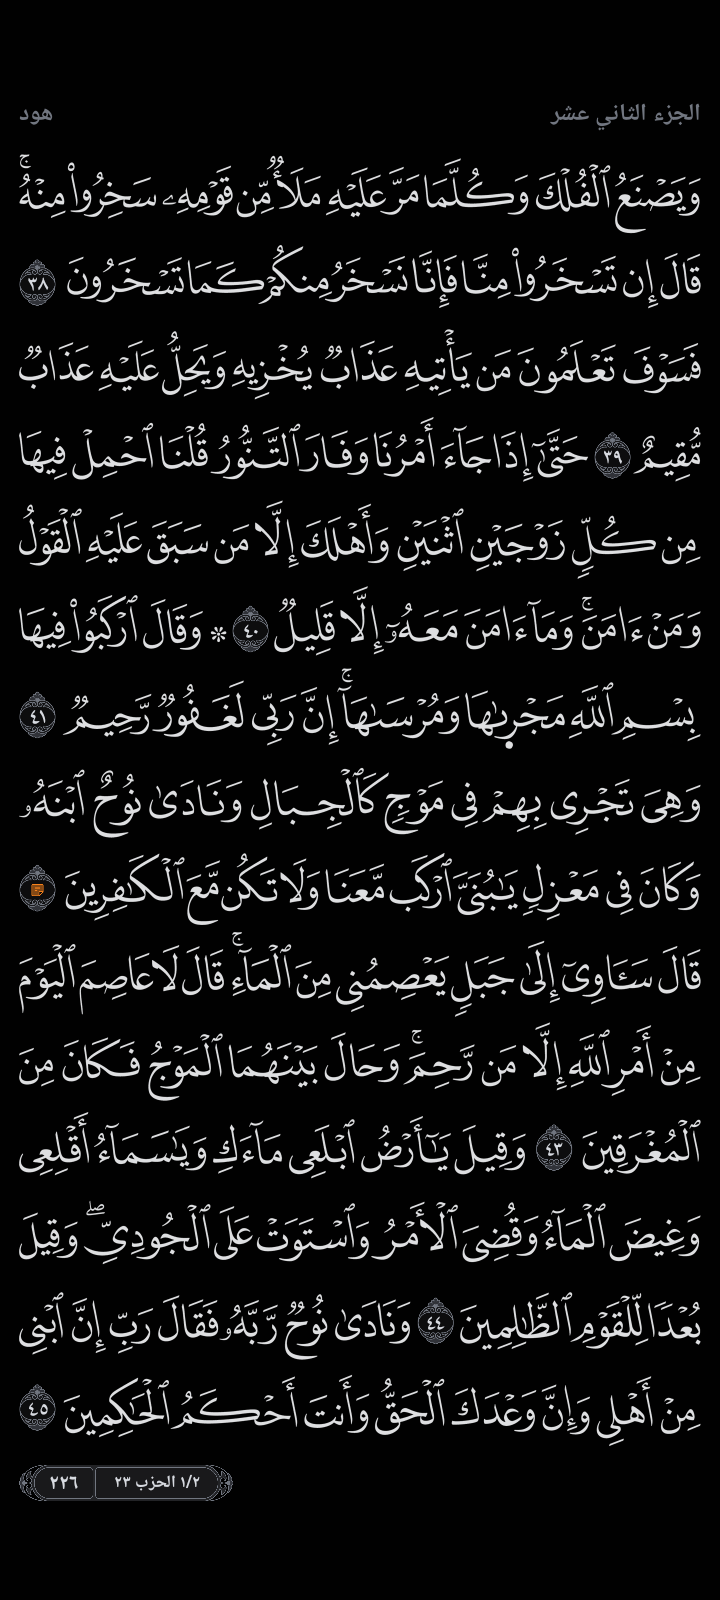 الجزء الثاني عشر
هود
وَيَصْنَعُ ٱلْفُلْكَ وَكُلَّمَا مَرَّ عَلَيْهِ مَلَأٌ مِّن قَوْمِهِۦ سَخِرُوا۟ مِنْهُ ۚ
قَالَ إِن تَسْخَرُوا۟ مِنَّا فَإِنَّا نَسْخَرُ مِنكُمْ كَمَا تَسْخَرُونَ ٣٨
فَسَوْفَ تَعْلَمُونَ مَن يَأْتِيهِ عَذَابٌ يُخْزِيهِ وَيَحِلُّ عَلَيْهِ عَذَابٌ
مُّقِيمٌ ٣٩ حَتَّىٰٓ إِذَا جَآءَ أَمْرُنَا وَفَارَ ٱلتَّنُّورُ قُلْنَا ٱحْمِلْ فِيهَا
مِن كُلٍّ زَوْجَيْنِ ٱثْنَيْنِ وَأَهْلَكَ إِلَّا مَن سَبَقَ عَلَيْهِ ٱلْقَوْلُ
وَمَنْ ءَامَنَ ۚ وَمَآ ءَامَنَ مَعَهُۥٓ إِلَّا قَلِيلٌ ٤٠ * وَقَالَ ٱرْكَبُوا۟ فِيهَا
بِسْمِ ٱللَّهِ مَجْر۪ىٰهَا وَمُرْسَىٰهَآ ۚ إِنَّ رَبِّى لَغَفُورٌ رَّحِيمٌ ٤١
وَهِىَ تَجْرِى بِهِمْ فِى مَوْجٍ كَٱلْجِبَالِ وَنَادَىٰ نُوحٌ ٱبْنَهُۥ
وَكَانَ فِى مَعْزِلٍ يَٰبُنَىَّ ٱرْكَب مَّعَنَا وَلَا تَكُن مَّعَ ٱلْكَٰفِرِينَ
قَالَ سَـَٔاوِىٓ إِلَىٰ جَبَلٍ يَعْصِمُنِى مِنَ ٱلْمَآءِ ۚ قَالَ لَا عَاصِمَ ٱلْيَوْمَ
مِنْ أَمْرِ ٱللَّهِ إِلَّا مَن رَّحِمَ ۚ وَحَالَ بَيْنَهُمَا ٱلْمَوْجُ فَكَانَ مِنَ
ٱلْمُغْرَقِينَ ٤٣ وَقِيلَ يَٰٓأَرْضُ ٱبْلَعِى مَآءَكِ وَيَٰسَمَآءُ أَقْلِعِى
وَغِيضَ ٱلْمَآءُ وَقُضِىَ ٱلْأَمْرُ وَٱسْتَوَتْ عَلَى ٱلْجُودِىِّ ۖ وَقِيلَ
بُعْدًا لِّلْقَوْمِ ٱلظَّٰلِمِينَ ٤٤ وَنَادَىٰ نُوحٌ رَّبَّهُۥ فَقَالَ رَبِّ إِنَّ ٱبْنِى
مِنْ أَهْلِى وَإِنَّ وَعْدَكَ ٱلْحَقُّ وَأَنتَ أَحْكَمُ ٱلْحَٰكِمِينَ ٤٥
١/٢ الحزب ٢٣
٢٢٦